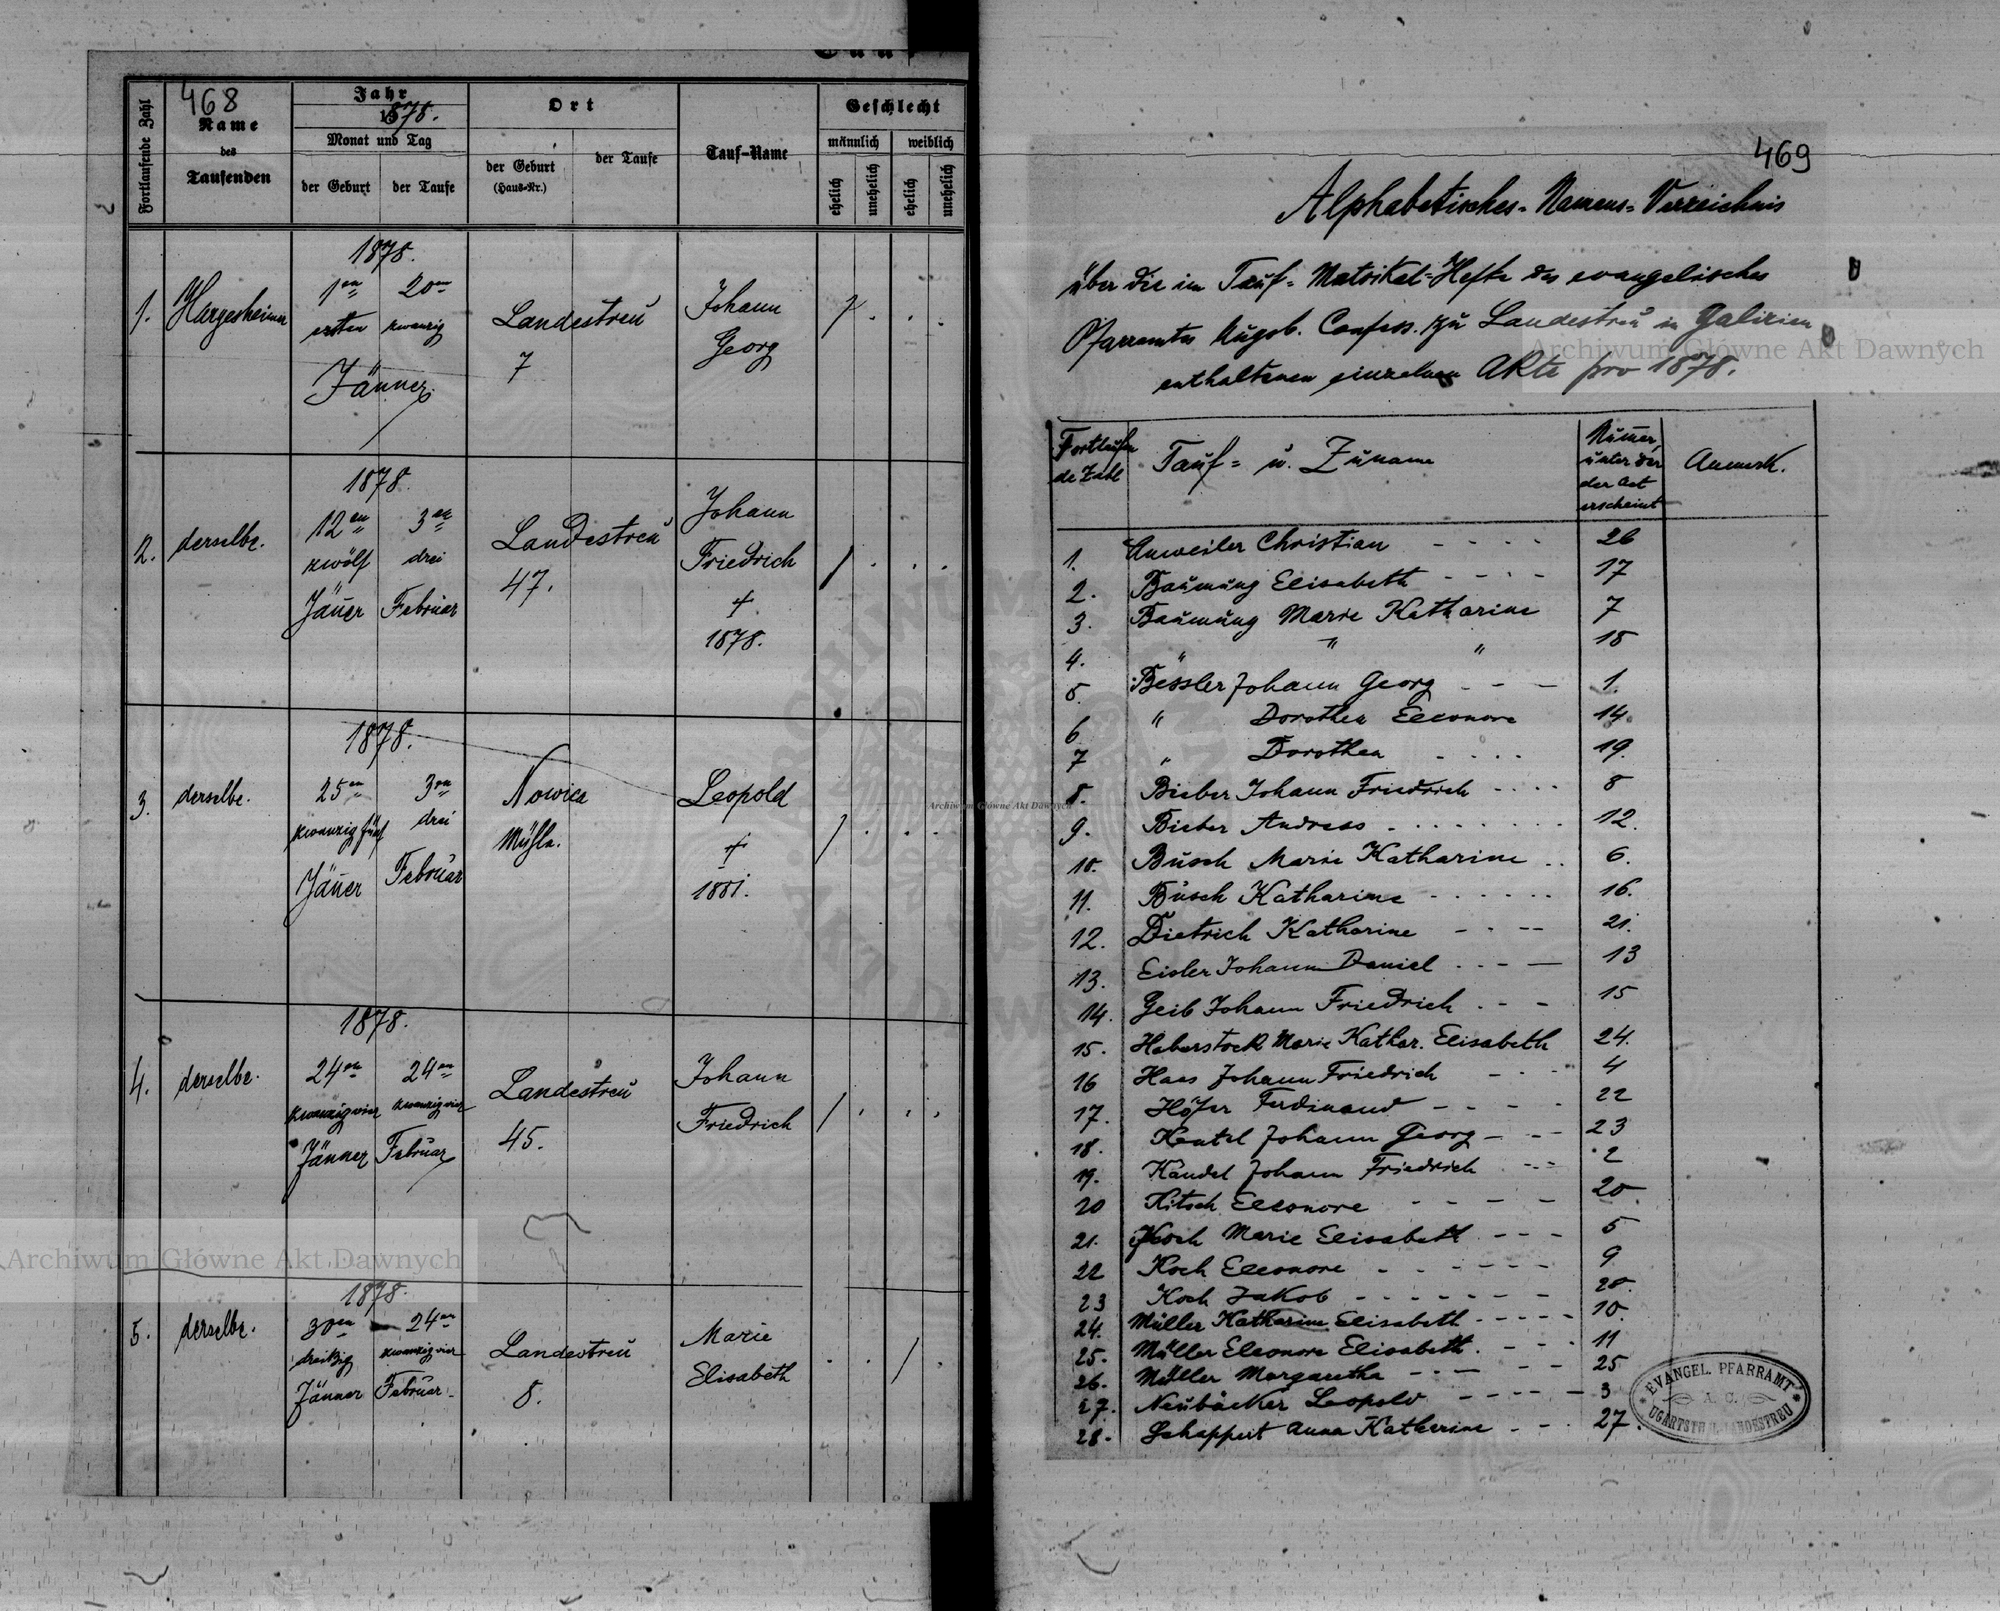 468
Fortlaufende Zahl
Name
des
Taufenden
Jahr
1878.
Monat und Tag
der Geburt
der Taufe
Ort
der Geburt
(Haus-Nr.)
der Taufe
Tauf-Name
Geschlecht
männlich
weiblich
ehelich
unehelich
ehelich
unehelich
1878.
1. Hargesheimer 1en 20en Landestreu Johann
ersten zwanzig 7 Georg
Jänner
1878.
2. derselbe. 12en 3en Landestreu Johann
zwölf drei 47. Friedrich
Jäner Februar +
1878.
1878.
3. derselbe. 25en 3en Nowica Leopold
zwanzig fünf drei Mühle. +
Jäner Februar 1881.
1878.
4. derselbe. 24en 24en Landestreu Johann
zwanzigvier zwanzigvier 45. Friedrich
Jänner Februar
1878.
5. derselbe. 30en 24en Landestreu Marie
dreißig zwanzigvier 8. Elisabeth
Jänner Februar
469
Alphabetisches-Namens-Verzeichnis
über die im Tauf-Matrikel-Hefte des evangelisches
Pfarramtes Augsb. Confess. zu Landestreu in Galizien
enthaltenen einzelnen Akte pro 1878.
Fortlaufen
de Zahl
Tauf- u. Zuname
Numer,
unter der
der Act
erscheint
Anmerk.
1. Anweiler Christian 26
2. Baumung Elisabeth 17
3. Baumung Marie Katharine 7
4. " " " 18
5 Bessler Johann Georg 1.
6 " Dorothea Eleonore 14.
7 " Dorothea 19.
8. Bieber Johann Friedrich 8
9. Bieber Andreas 12.
10. Busch Marie Katharine 6.
11. Busch Katharine 16.
12. Dietrich Katharine 21.
13. Eisler Johann Daniel 13
14. Geib Johann Friedrich 15
15. Haberstock Marie Kathar. Elisabeth 24.
16 Haas Johann Friedrich 4
17. Höfer Ferdinand 22
18. Kentel Johann Georg 23
19. Kandel Johann Friedrich 2
20 Kitsch Eleonore 20
21. Koch Marie Elisabeth 5
22 Koch Eleonore 9
23 Koch Jakob 28.
24. Müller Katharine Elisabeth 10.
25. Müller Eleonore Elisabeth 11
26. Müller Margaretha 25
27. Neubäcker Leopold 3
28. Schappert Anna Katherine 27.
EVANGEL. PFARRAMT
A. C.
Archiwum Główne Akt Dawnych
Archiwum Główne Akt Dawnych
Archiwum Główne Akt Dawnych